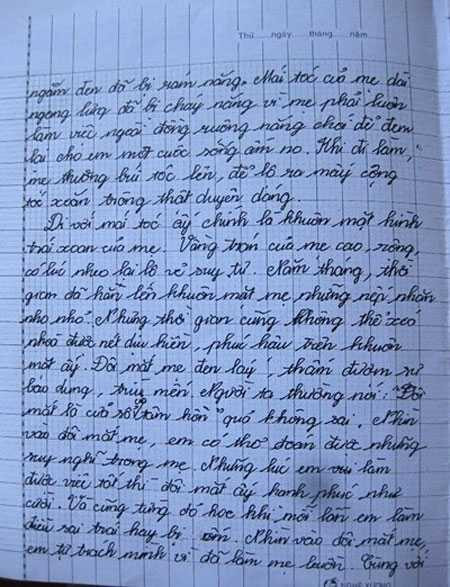 Thứ ngày tháng năm
ngăm đen đã bị rám nắng. Mái tóc của mẹ dài
ngang lưng đã bị cháy nắng vì mẹ phải luôn
làm việc ngoài đồng ruộng nắng chói để đem
lại cho em một cuộc sống ấm no. Khi đi làm,
mẹ thường búi tóc lên, để lộ ra mấy cọng
tóc xoăn trông thật duyên dáng.
Đi với mái tóc ấy chính là khuôn mặt hình
trái xoan của mẹ. Vầng trán của mẹ cao, rộng,
có lúc nheo lại lộ vẻ suy tư. Năm tháng, thời
gian đã hằn lên khuôn mặt mẹ những nếp nhăn
nho nhỏ. Nhưng thời gian cũng không thể xoá
nhoà được nét dịu hiền, phúc hậu trên khuôn
mặt ấy. Đôi mắt mẹ đen láy, thắm đượm sự
bao dung, trìu mến. Người ta thường nói: "Đôi
mắt là cửa sổ tâm hồn" quả không sai. Nhìn
vào đôi mắt mẹ, em có thể đoán được những
suy nghĩ trong mẹ. Những lúc em vui làm
được việc tốt thì đôi mắt ấy hạnh phúc như
cười. Và cũng từng đỏ hoe khi mỗi lần em làm
điều sai trái hay bị ốm. Nhìn vào đôi mắt mẹ,
em tự trách mình vì đã làm mẹ buồn. Cùng với